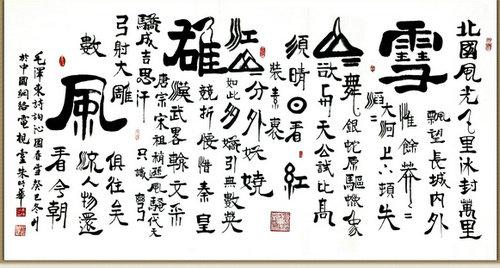 北國風光千里冰封萬里
雪
飄望長城内外
惟餘莽=
大河上下頓失
滔=
山舞銀蛇原驅蠟象
欲與天公試比高
須晴日看
紅
裝素裹
分外妖嬈
江山
如此多嬌引無數英
雄
競折腰惜秦皇
漢武略輸文采
唐宗宋祖稍遜風騷一代天
驕成吉思汗
只識彎
弓射大雕
俱往矣
數
風
流人物還
看今朝
毛澤東詩詞沁園春雪癸巳冬月
於中國網絡電視臺朱明華